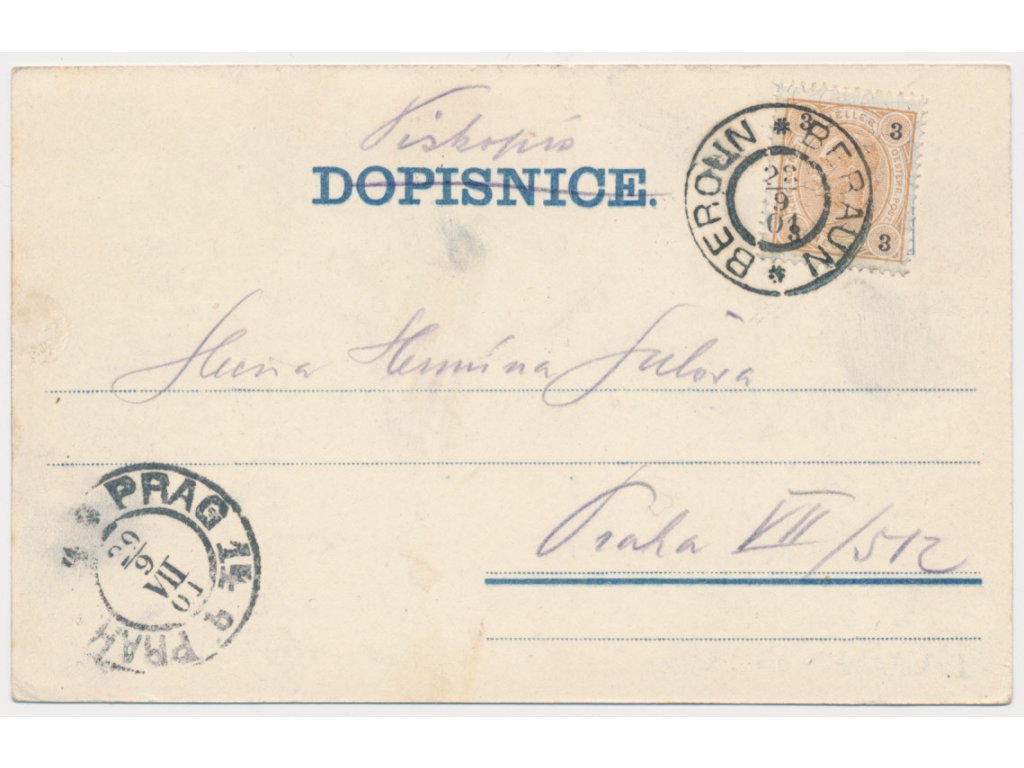 Tiskopis
DOPISNICE.
3 HELLER 3
OESTERR. POST
3 3
* BERAUN * BEROUN
28
9
01
Slečna Hermína
Praha VII/512
PRAG 14
29
9
VII
01
PRAHA